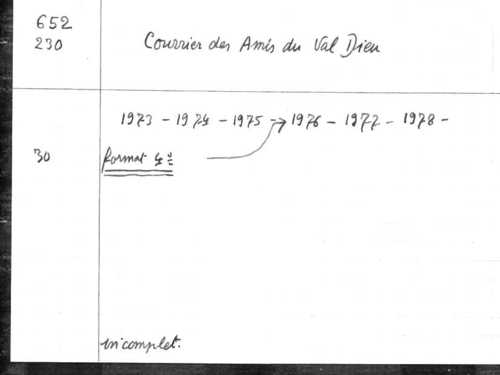 652
230 Courrier des Amis du Val Dieu
1973 - 1974 - 1975 → 1976 - 1977 - 1978 -
30 format 4º
incomplet.